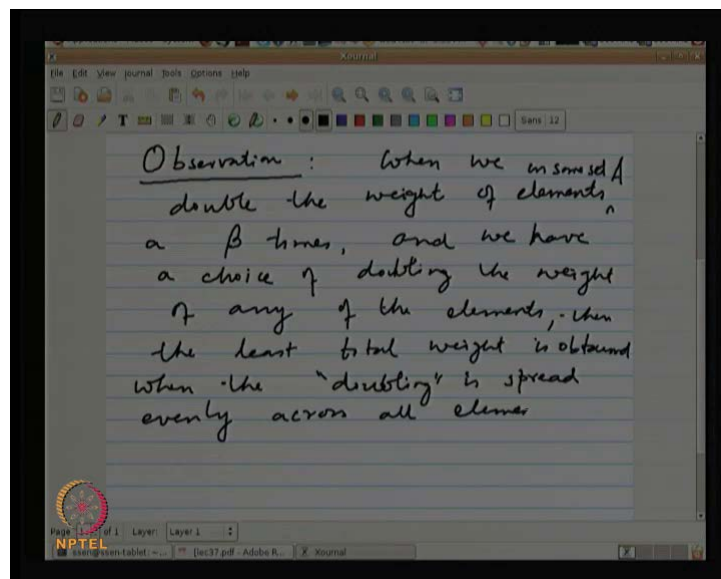 Xournal
File Edit View Journal Tools Options Help
Sans 12
Observation : When we in some set A
double the weight of elements ^
a β times, and we have
a choice of doubling the weight
of any of the elements, then
the least total weight is obtained
when the "doubling" is spread
evenly across all elemen
Page of 1 Layer: Layer 1
NPTEL
ssen@ssen-tablet: ~... [lec37.pdf - Adobe R... Xournal